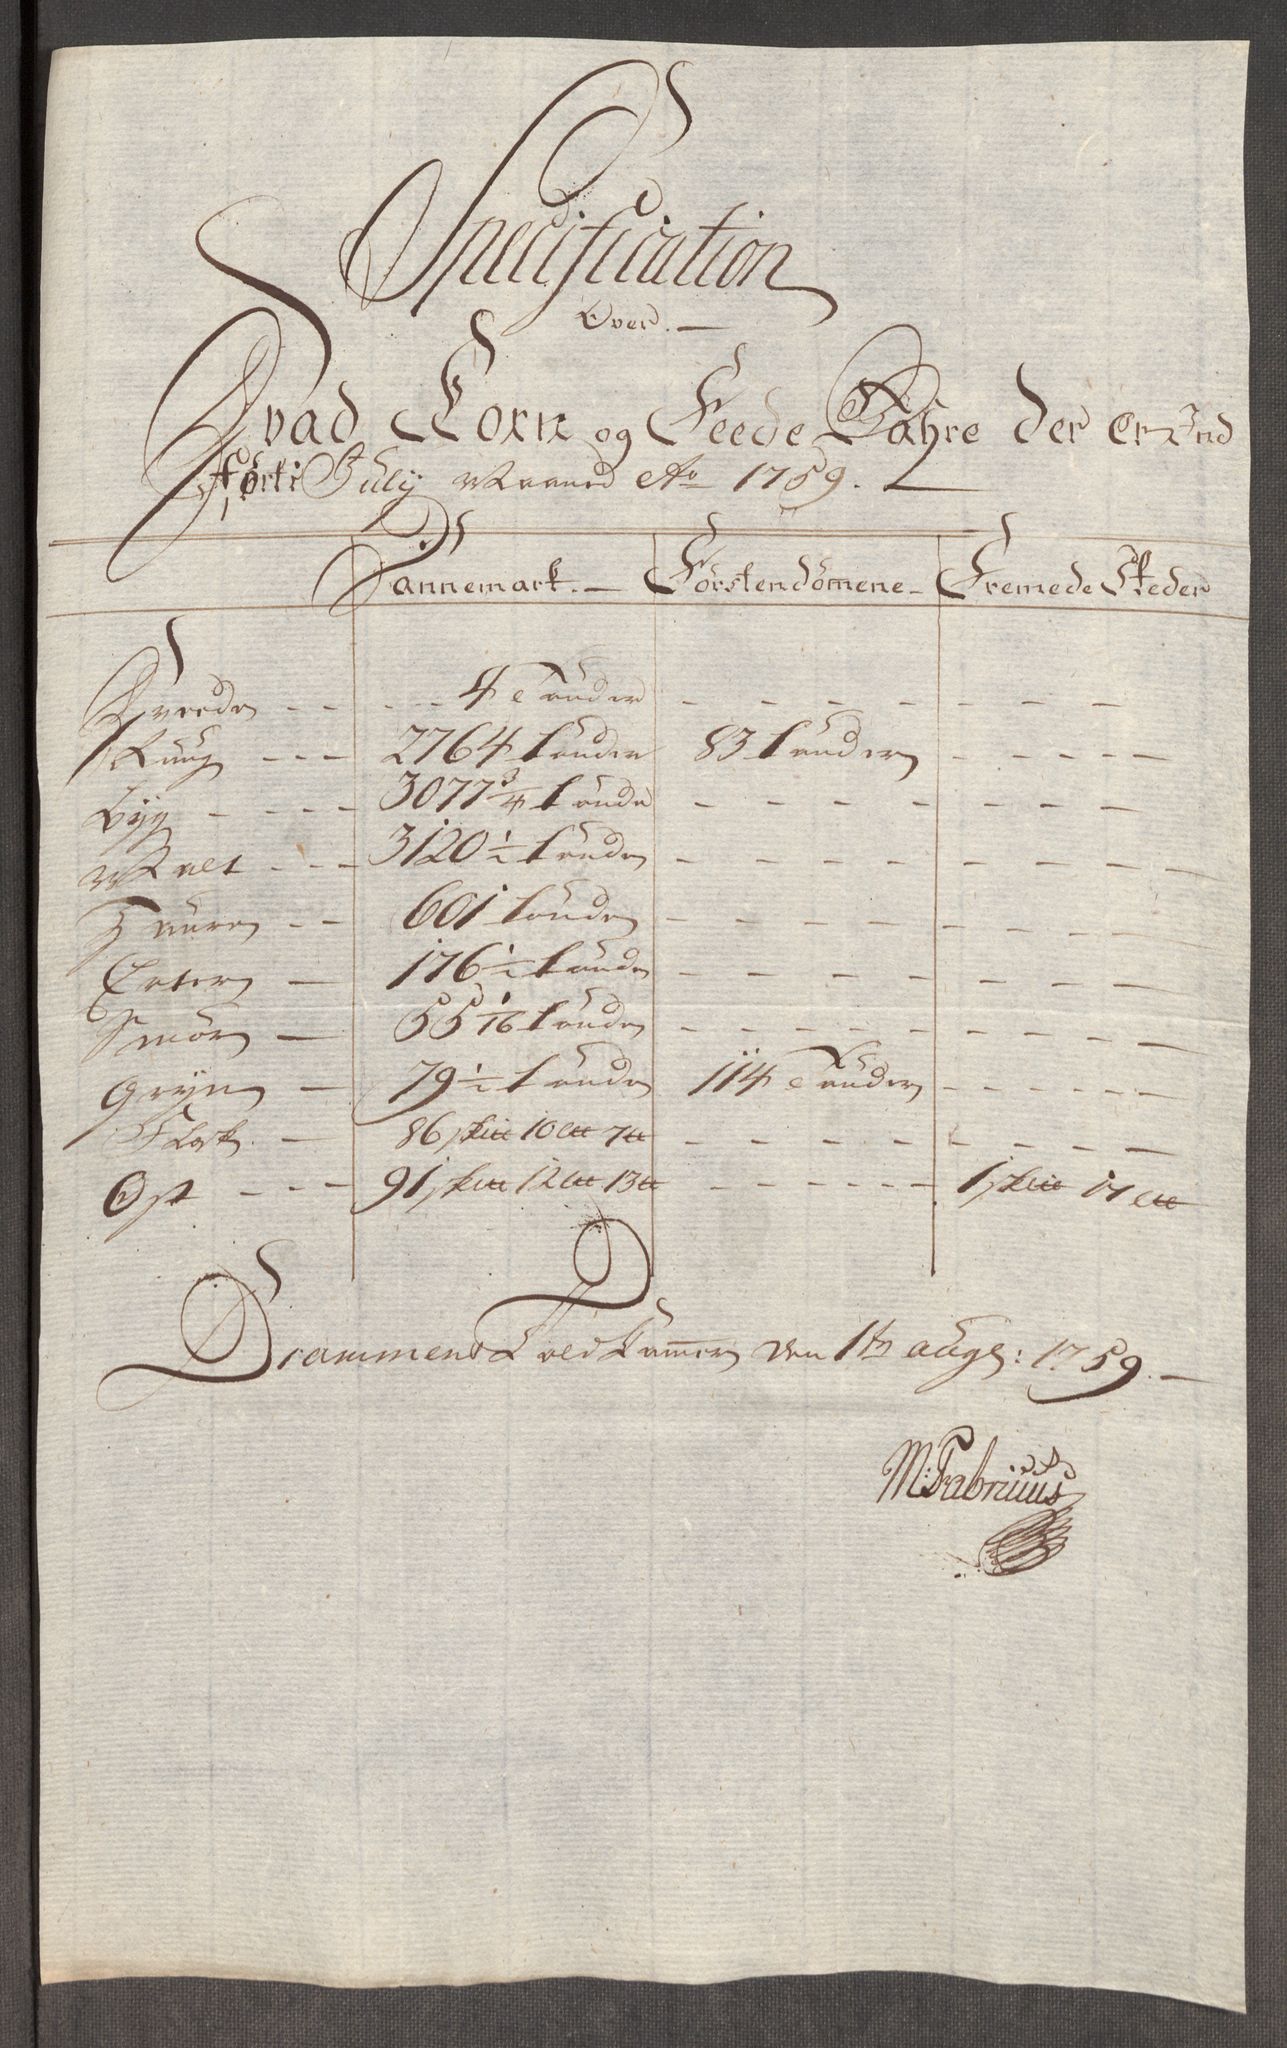 Specification
Over.
Hvad Korn og Feede Wahre der er Ind
ført i July Maaned Ao 1759.
Dannemark. Förstendömene Fremede Steder
Hveede 4 Tönder
Rüug 2764 tönder 83 tönder
Byg 3077 3/4 tönder
Malt 3120 1/2 tönder
Haure 601 tönder
Erter 176 1/2 tönder
Smör 55 1/16 tönder
Gryn 79 1/2 tönder 114 Tönder
Flesk 86 sk℔ 10 l℔ 7 ℔
Ost 91 sk℔ 12 l℔ 13 ℔ 1 sk℔ 17 l℔
Drammens Told Kammer den 1te Augs: 1759.
M: Fabritius